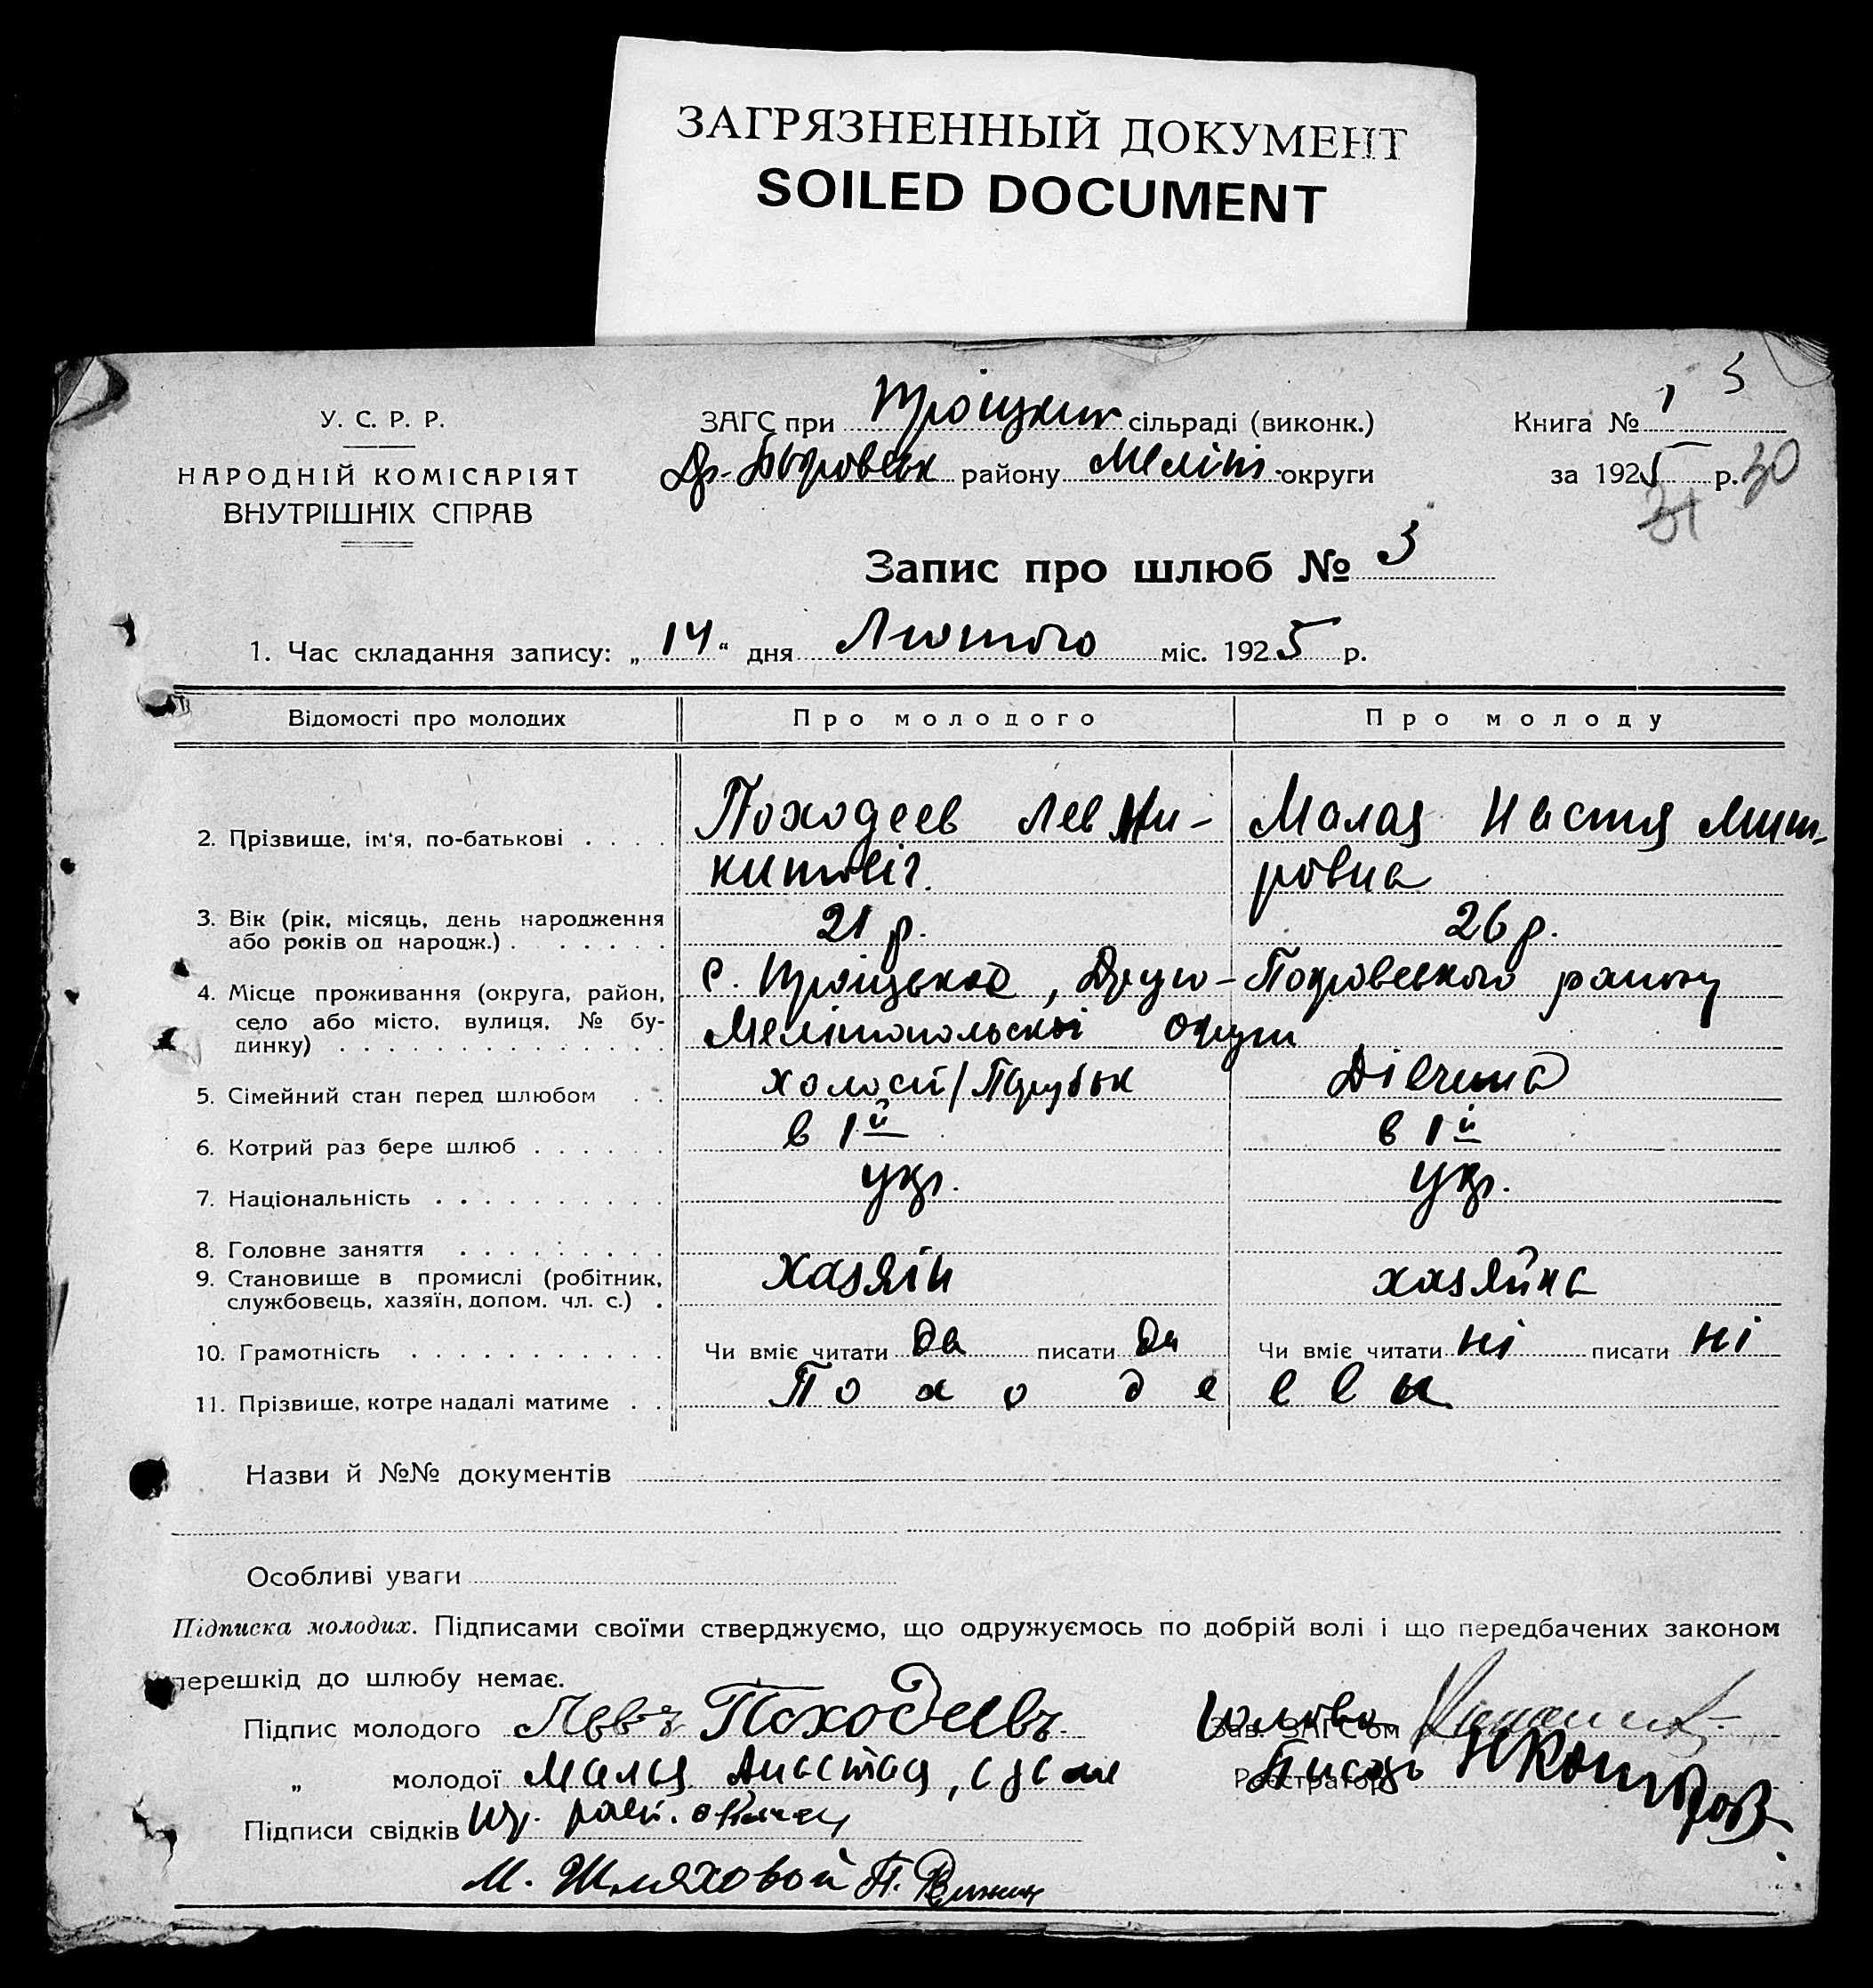 ЗАГРЯЗНЕННЫЙ ДОКУМЕНТ
SOILED DOCUMENT
У. С. Р. Р.
НАРОДНІЙ КОМІСАРІЯТ
ВНУТРІШНІХ СПРАВ
ЗАГС при Троіцкии сільраді (виконк.)
району Меліт. округи
Книга № 1 3
за 1925 р. 30
31
Запис про шлюб № 3
1. Час складання запису: „14“ дня Лютого міс. 1925 р.
Відомості про молодих Про молодого Про молоду
2. Прізвище, ім'я, по-батькові . . . . Походеев Лев Ни- Малая Настя Мит-
китовіч. ровна
3. Вік (рік, місяць, день народження
або років од народж.) . . . . . . . 21 р. 26 р.
4. Місце проживання (округа, район,
село або місто, вулиця, № бу-
динку) . . . . . . . . . . . . . .
с. Троіцькое, Друго-Покровского району
Мелітопольскоі округи
5. Сімейний стан перед шлюбом . . холост/Парубок Дівчина
6. Котрий раз бере шлюб . . . . . . в 1й в 1й
7. Національність . . . . . . . . . . укр. укр.
8. Головне заняття . . . . . . . . .
9. Становище в промислі (робітник,
службовець, хазяїн, допом. чл. с.) . хазяін хазяйка
10. Грамотність . . . . . . . . . . . Чи вміє читати да писати да Чи вміє читати ні писати ні
11. Прізвище, котре надалі матиме . . Походеевы
Назви й №№ документів
Особливі уваги
Підписка молодих. Підписами своїми стверджуємо, що одружуємось по добрій волі і що передбачених законом
перешкід до шлюбу немає.
Підпис молодого Левъ Походеевъ Зав. ЗАГС'ом Голова
„ молодої Малая Реєстратор Писарь
Підписи свідків
М. Шляховой П.